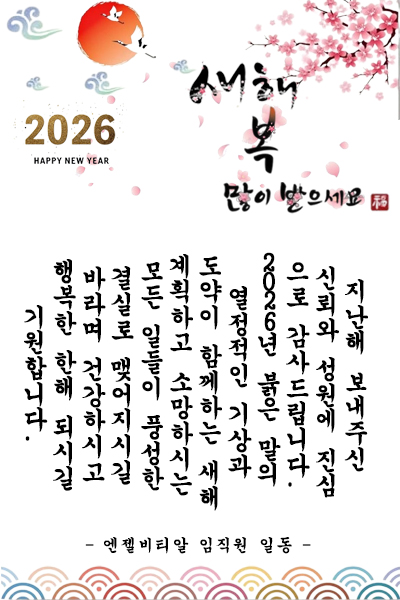 새해
복
많이 받으세요
福
2026
HAPPY NEW YEAR
지난해 보내주신
신뢰와 성원에 진심
으로 감사드립니다.
2026년 붉은 말의
열정적인 기상과
도약이 함께하는 새해
계획하고 소망하시는
모든 일들이 풍성한
결실로 맺어지시길
바라며 건강하시고
행복한 한해 되시길
기원합니다.
- 엔젤비티알 임직원 일동 -